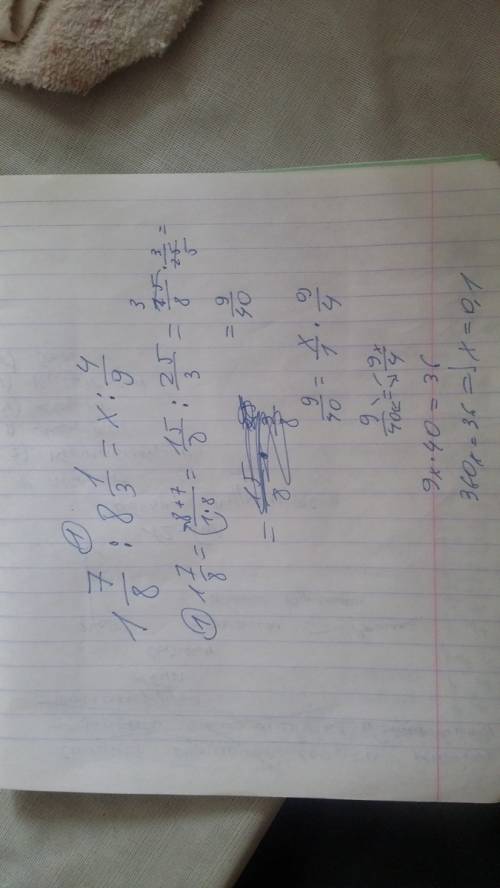 ①
1 7/8 : 8 1/3 = x : 4/9
① 1 7/8 = (8+7)/(1·8) = 15/8 : 25/3 = 15/8 · 3/25 =
= 9/40
9/40 = x/1 · 9/4
9/40 = 9x/4
9x·40 = 36
360x = 36 = x = 0,1